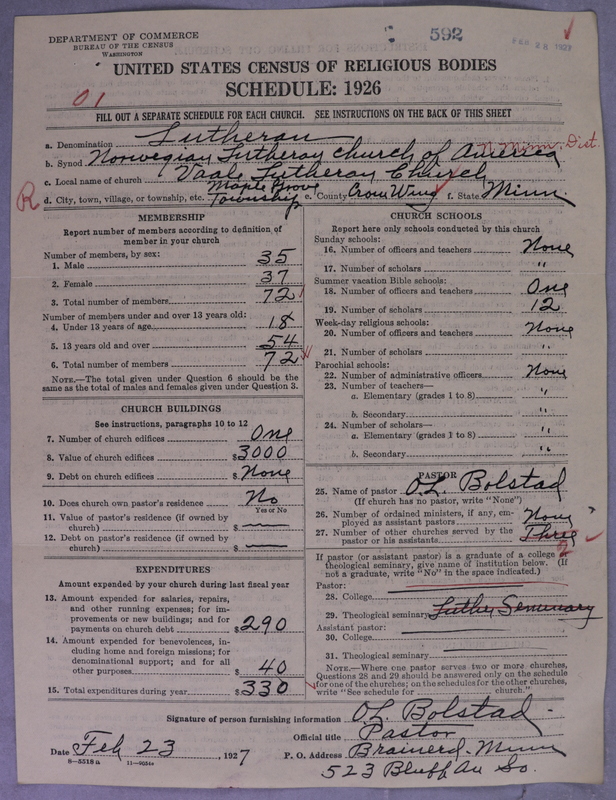 592
FEB 28 1927
DEPARTMENT OF COMMERCE
BUREAU OF THE CENSUS
WASHINGTON
UNITED STATES CENSUS OF RELIGIOUS BODIES
SCHEDULE: 1926
01
FILL OUT A SEPARATE SCHEDULE FOR EACH CHURCH. SEE INSTRUCTIONS ON THE BACK OF THIS SHEET
a. Denomination Lutheran
N. Minn. Dist.
b. Synod Norwegian Lutheran Church of America
c. Local name of church Vaale Lutheran Church
R d. City, town, village, or township, etc. Maple Grove Township e. County Crow Wing f. State Minn.
MEMBERSHIP
Report number of members according to definition of
member in your church
Number of members, by sex:
1. Male 35
2. Female 37
3. Total number of members 72
Number of members under and over 13 years old:
4. Under 13 years of age 18
5. 13 years old and over 54
6. Total number of members 72
NOTE.—The total given under Question 6 should be the
same as the total of males and females given under Question 3.
CHURCH BUILDINGS
See instructions, paragraphs 10 to 12
7. Number of church edifices One
8. Value of church edifices $3000
9. Debt on church edifices $ None
10. Does church own pastor's residence No
Yes or No
11. Value of pastor's residence (if owned by
church) $ —
12. Debt on pastor's residence (if owned by
church) $ —
EXPENDITURES
Amount expended by your church during last fiscal year
13. Amount expended for salaries, repairs,
and other running expenses; for im-
provements or new buildings; and for
payments on church debt $290
14. Amount expended for benevolences, in-
cluding home and foreign missions; for
denominational support; and for all
other purposes $ 40
15. Total expenditures during year $330
CHURCH SCHOOLS
Report here only schools conducted by this church
Sunday schools:
16. Number of officers and teachers None
17. Number of scholars "
Summer vacation Bible schools:
18. Number of officers and teachers One
19. Number of scholars 12
Week-day religious schools:
20. Number of officers and teachers None
21. Number of scholars "
Parochial schools:
22. Number of administrative officers None
23. Number of teachers—
a. Elementary (grades 1 to 8) "
b. Secondary "
24. Number of scholars—
a. Elementary (grades 1 to 8) "
b. Secondary "
PASTOR
25. Name of pastor O.L. Bolstad
(If church has no pastor, write "None")
26. Number of ordained ministers, if any, em-
ployed as assistant pastors None
27. Number of other churches served by the
pastor or his assistants Three
2
If pastor (or assistant pastor) is a graduate of a college or
theological seminary, give name of institution below. (If
not a graduate, write "No" in the space indicated.)
Pastor:
28. College
29. Theological seminary Luther Seminary
Assistant pastor:
30. College
31. Theological seminary
NOTE.—Where one pastor serves two or more churches,
Questions 28 and 29 should be answered only on the schedule
for one of the churches; on the schedules for the other churches,
write "See schedule for church."
Signature of person furnishing information O.L. Bolstad
Official title Pastor
Date Feb 23, 1927 P. O. Address Brainerd, Minn
523 Bluff Av So.
8—5518 a 11—9554